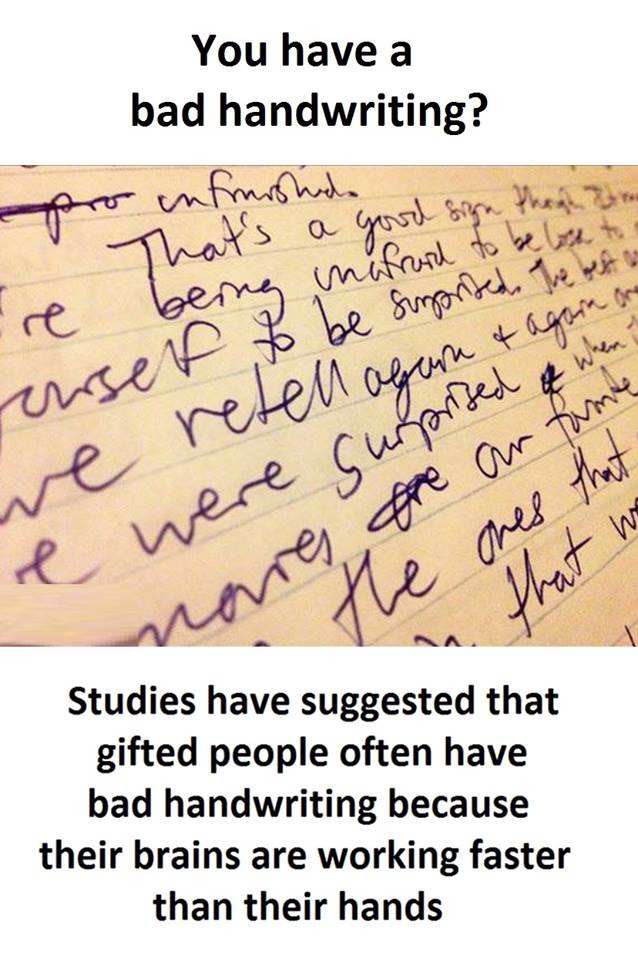 You have a
bad handwriting?
unfinished.
That's a good sign though
're being unafraid to be lose to
yourself to be surprised. The best
we retell again & again
we were surprised when
movies are our favorite
the ones that
that
Studies have suggested that
gifted people often have
bad handwriting because
their brains are working faster
than their hands